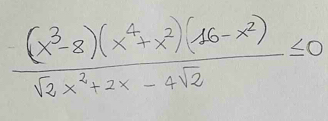 (x³-8)(x⁴+x²)(16-x²) / √2 x²+2x - 4√2 ≤0